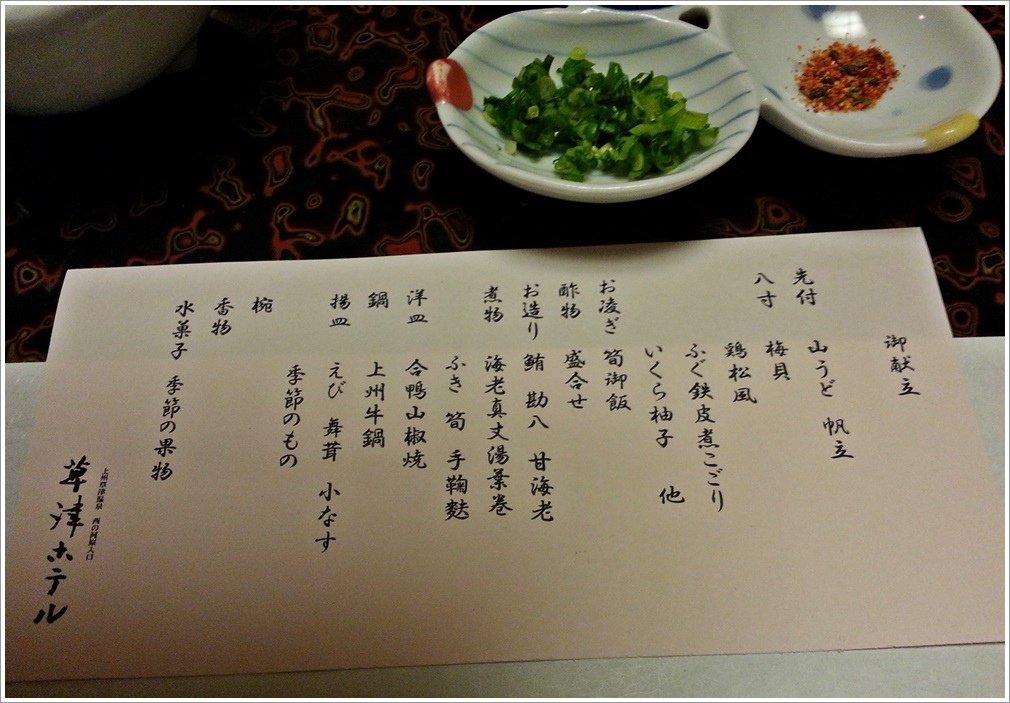 御献立
先付 山うど 帆立
八寸 梅貝
鶏松風
ふぐ鉄皮煮こごり
いくら柚子 他
お凌ぎ 筍御飯
酢物 盛合せ
お造り 鮪 勘八 甘海老
煮物 海老真丈湯葉巻
ふき 筍 手鞠麩
洋皿 合鴨山椒焼
鍋 上州牛鍋
揚皿 えび 舞茸 小なす
季節のもの
椀
香物
水菓子 季節の果物
上州草津温泉 西の河原入口
草津ホテル